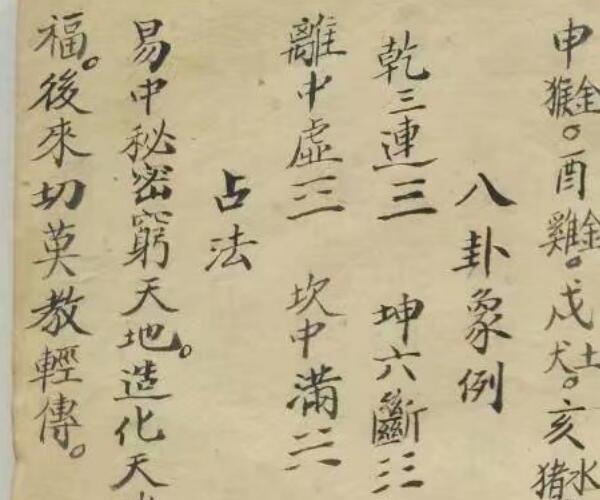 申金猴。酉金雞。戌土犬。亥水猪
八卦象例
乾三連☰ 坤六斷☷
離中虛☲ 坎中滿☵
占法
易中秘密窮天地。造化天
福。後來切莫教輕傳。